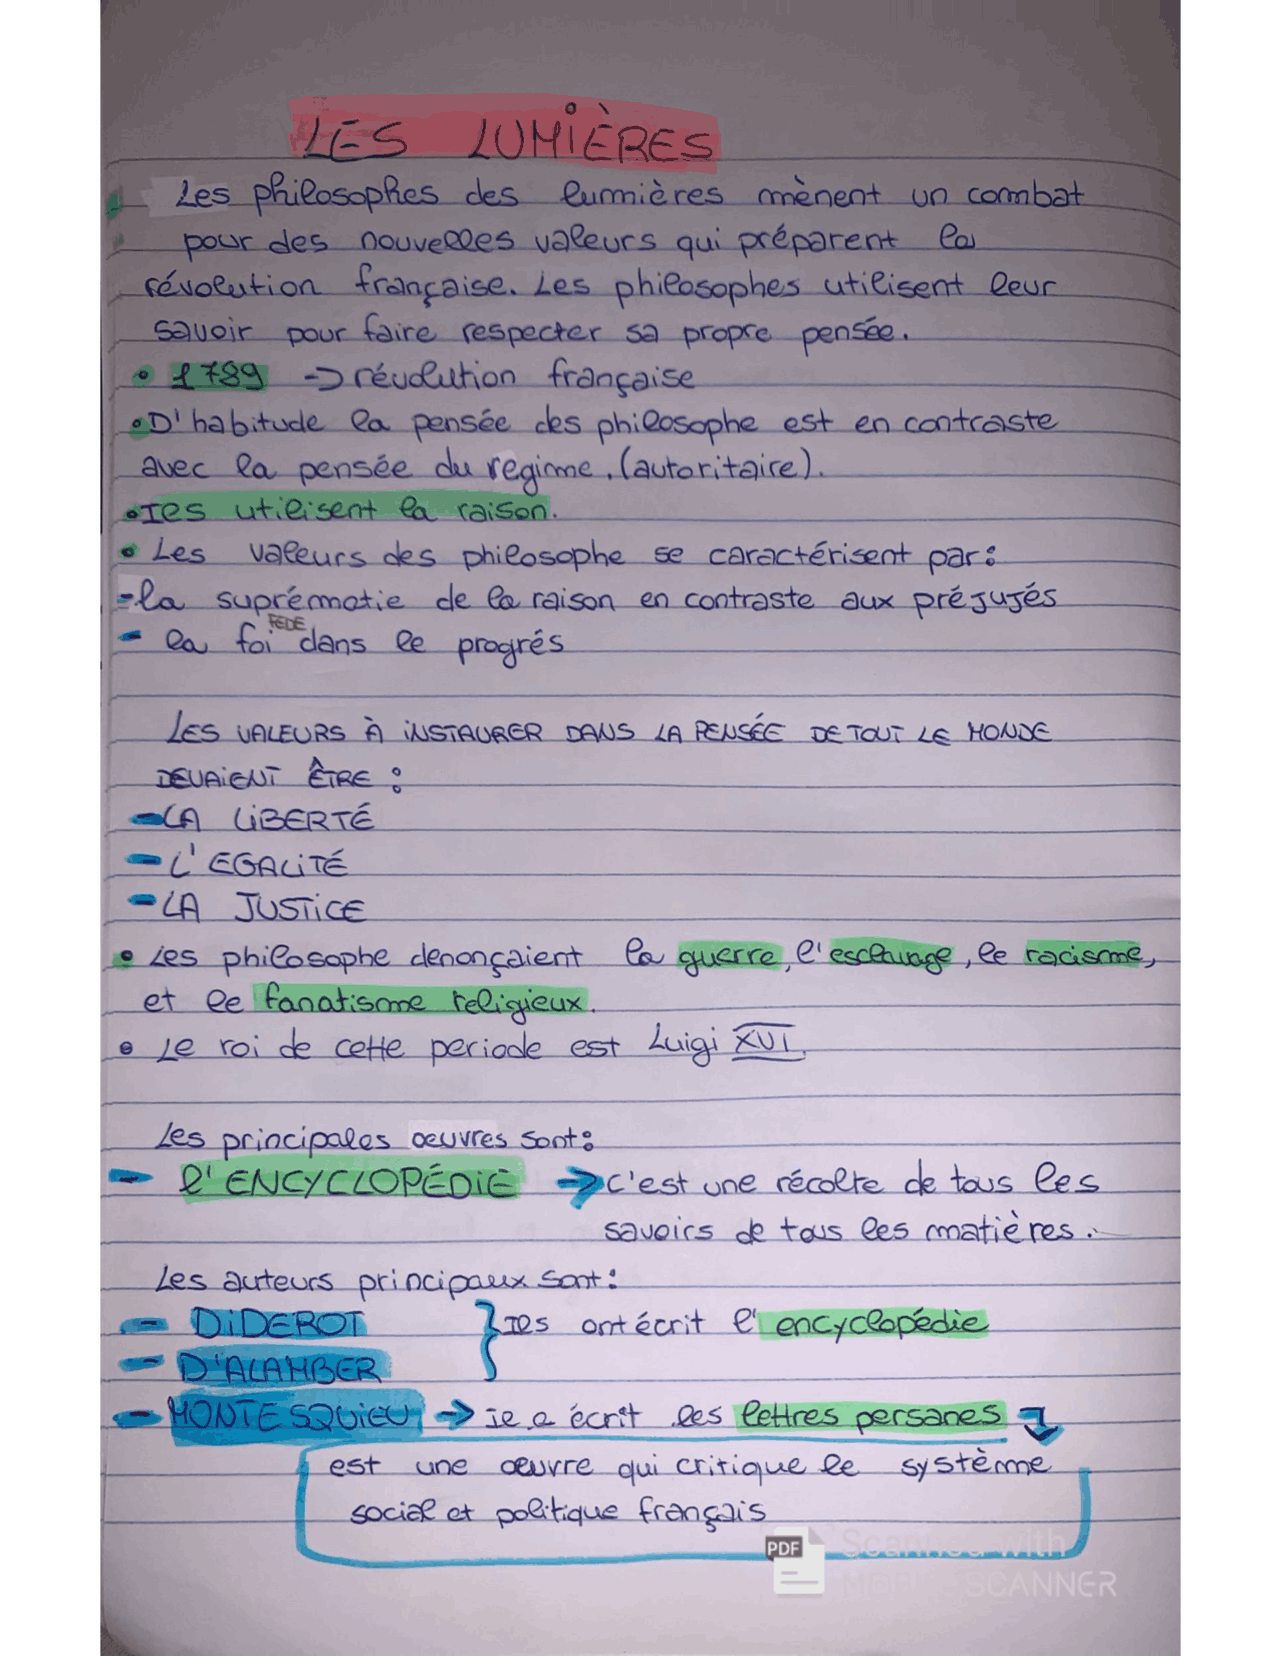 LES LUMIÈRES
Les philosophes des lumières mènent un combat
pour des nouvelles valeurs qui préparent la
révolution française. Les philosophes utilisent leur
savoir pour faire respecter sa propre pensée.
• 1789 -> révolution française
• D'habitude la pensée des philosophe est en contraste
avec la pensée du regime. (autoritaire).
• Ils utilisent la raison.
• Les valeurs des philosophe se caractérisent par:
- la suprématie de la raison en contraste aux préjujés
FEDE
- la foi dans le progrés
LES VALEURS À INSTAURER DANS LA PENSÉE DE TOUT LE MONDE
DEVAIENT ÊTRE :
- LA LIBERTÉ
- L'EGALITÉ
- LA JUSTICE
• Les philosophe denonçaient la guerre, l'esclavage, le racisme,
et le fanatisme religieux.
• Le roi de cette periode est Luigi XVI.
Les principales oeuvres sont:
- l'ENCYCLOPÉDIE -> c'est une récolte de tous les
savoirs de tous les matières.
Les auteurs principaux sont:
- DIDEROT } Ils ont écrit l'encyclopédie
- D'ALAMBER
- MONTESQUIEU -> il a écrit les lettres persanes
est une œuvre qui critique le système
social et politique français
PDF Scanned with
MOBILE SCANNER